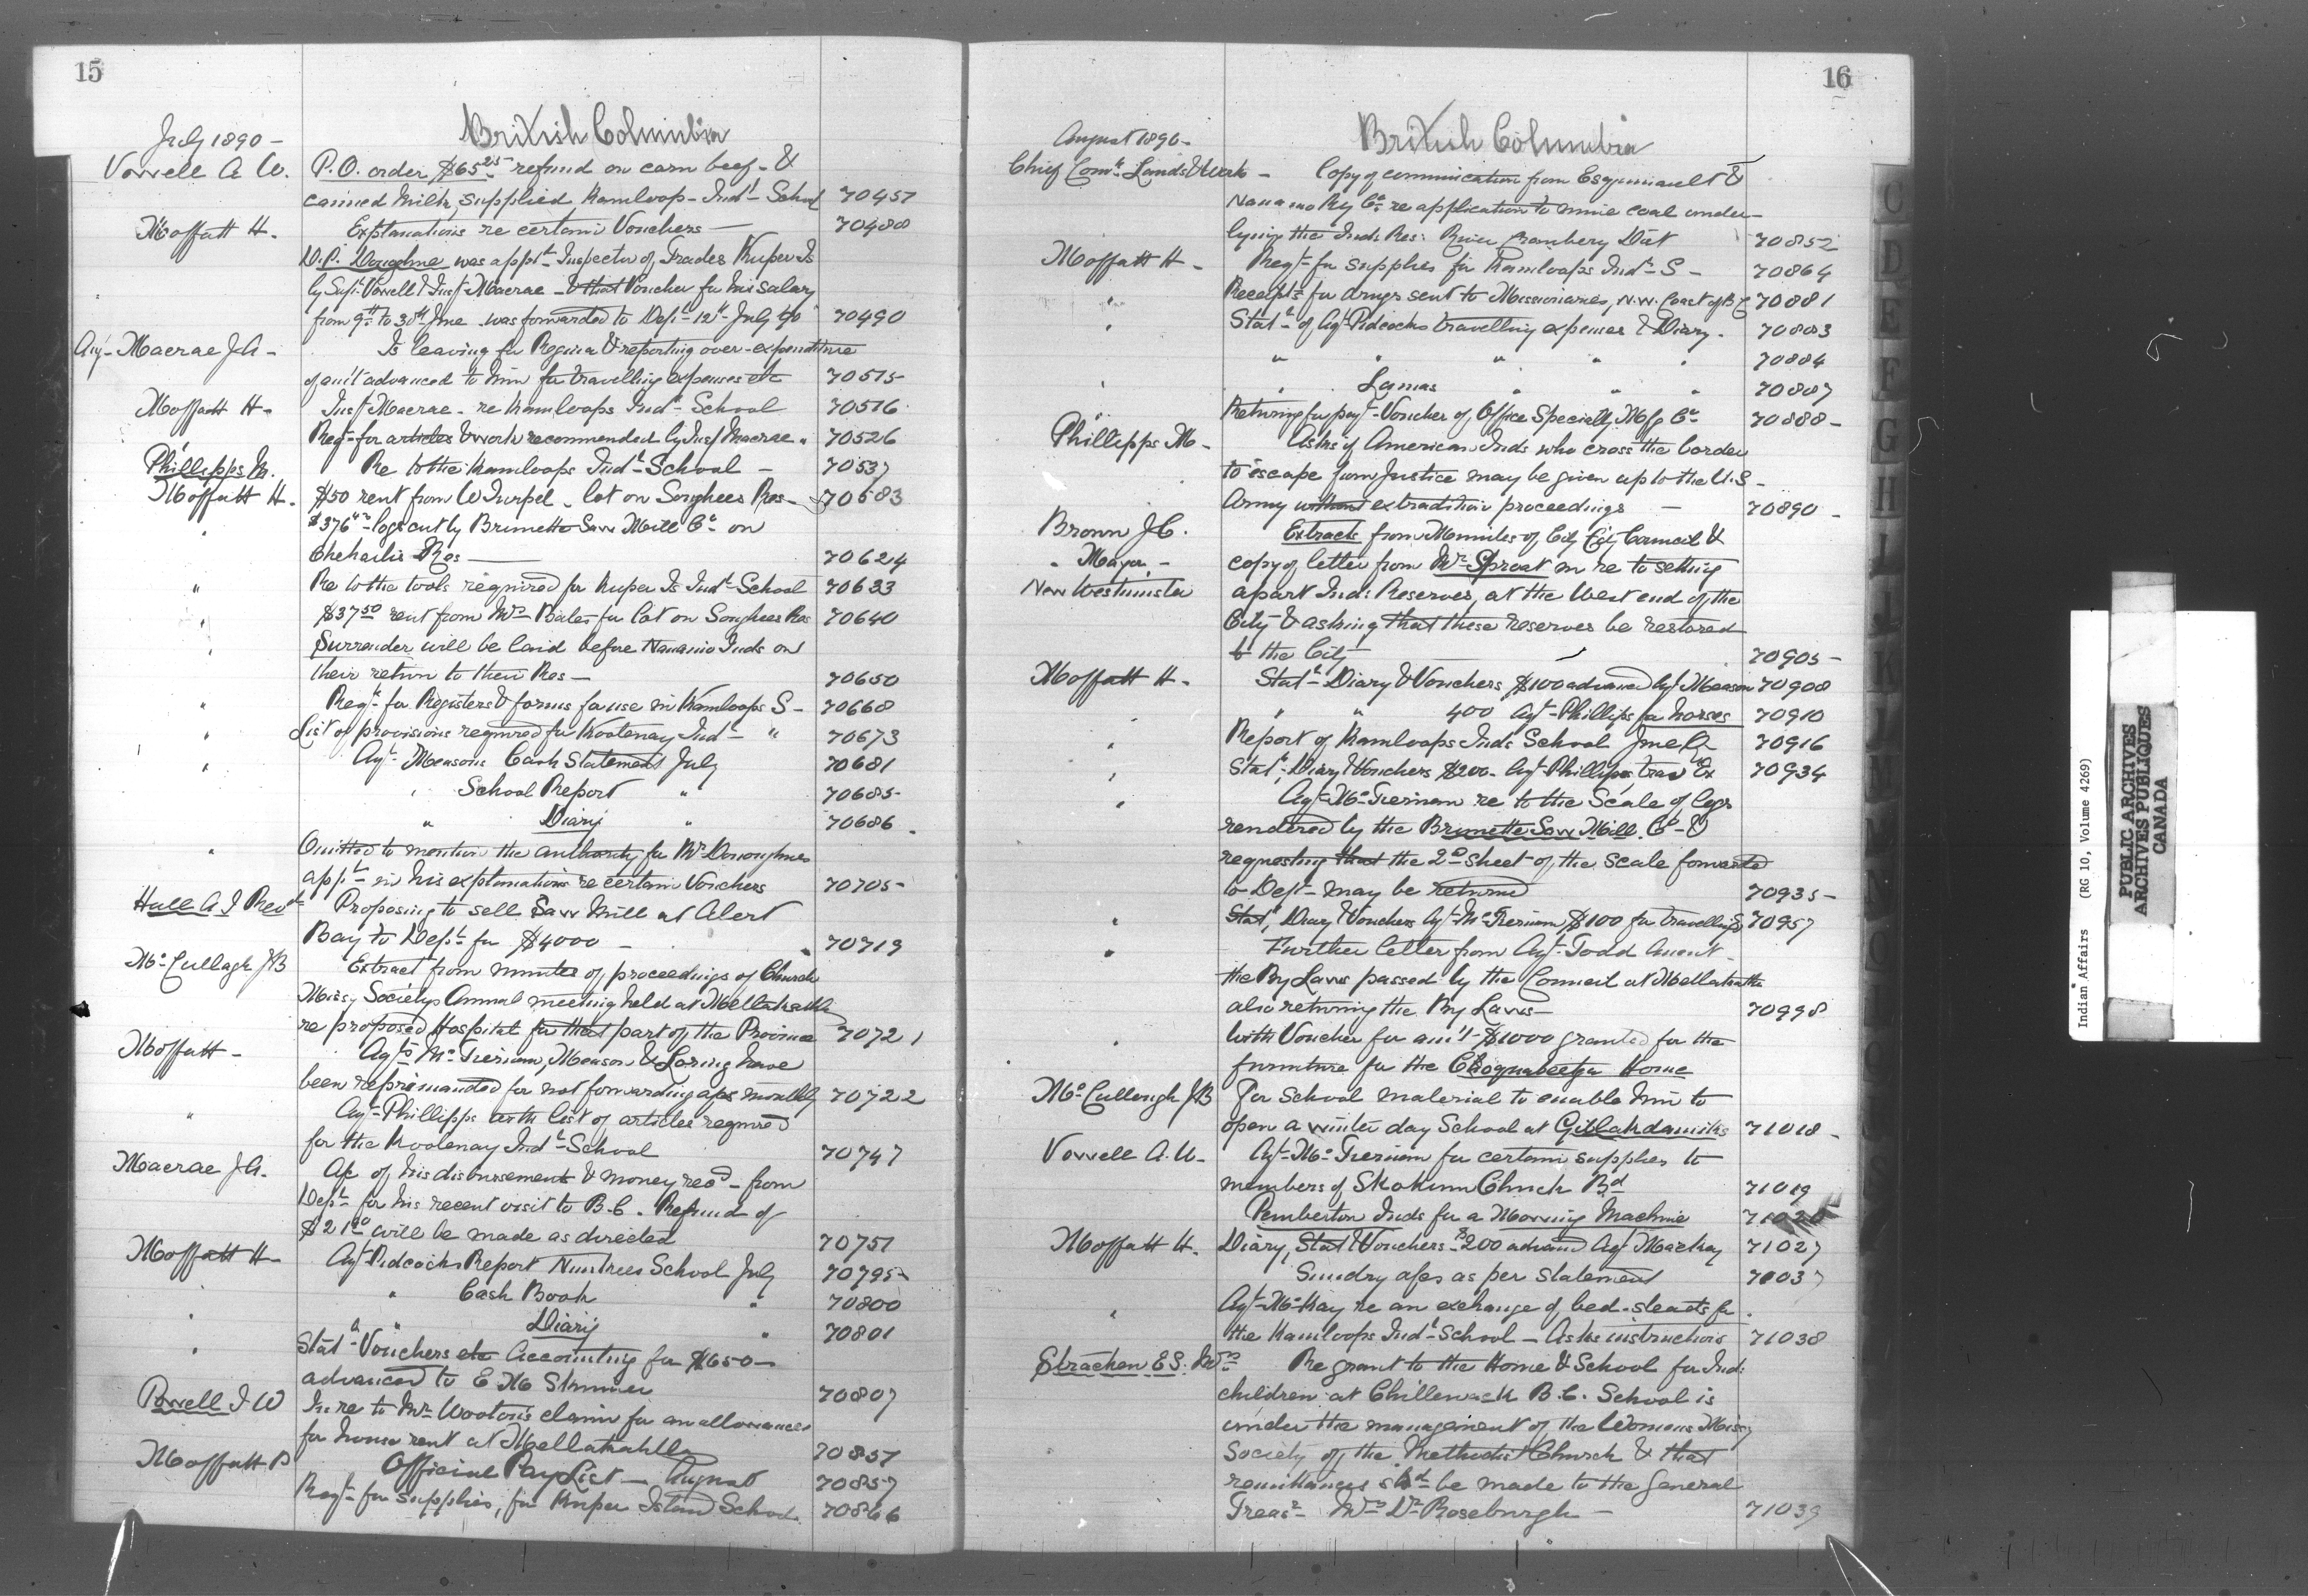 15
British Columbia
July 1890 -
Vowell A. W. P.O. order $65.25 refund on corn beef - &
canned milk, supplied Kamloop - Indl School 70457
Moffatt H. Explanations re certain Vouchers — 70488
was apptd Inspector of Trades Kuper Is
by Supt Vowell & Inspr Macrae - & that Voucher for his salary
from 9th to 30th June was forwarded to Dept 12th July 90 70490
Macrae J A - Is leaving for Regina & reporting over-expenditure
of amt advanced to him for travelling expenses etc 70515
Moffatt H - Insp Macrae - re Kamloops Indl School 70516
Reqn for articles & work recommended by Insp Macrae " 70526
Phillipps M. Re to the Kamloops Indl School - 70537
Moffatt H. $50 rent from W Turpel - lot on Songhees Res - 70583
logs cut by Brunette Saw Mill Co on
Chehailis Res — 70624
" Re to the tools required for Kuper Is Indl School 70633
" $37.50 rent from Mrs Bales for lot on Songhees Res 70640
" Surrender will be laid before Nanaimo Inds on
their return to their Res — 70650
" Reqn for Registers & forms for use in Kamloops S - 70668
" List of provisions required for Kootenay Indl " 70673
" Agt Measons Cash Statement July 70681
" School Report " 70685
" Diary " 70686
" Omitted to mention the authority for Mr Donoghues
appt in his explanations re certain Vouchers 70705
Hall A J Revd Proposing to sell Saw Mill at Alert
Bay to Dept for $4000 - 70719
McCullagh J B Extract from minutes of proceedings of Church
Missy Societys Annual meeting held at Metlakahtla
re proposed Hospital for that part of the Province 70721
Moffatt - Agts McTiernan, Meason & Loring have
been reprimanded for not forwarding a/cs monthly 70722
" Agt Phillipps with list of articles required
for the Kootenay Indl School 70747
Macrae J A. A/c of his disbursements & money recd from
Dept for his recent visit to B.C. Refund of
will be made as directed 70751
Moffatt H - Agt Pidcocks Report School July 70795
" Cash Book " 70800
" Diary " 70801
" Statt Vouchers etc Accounting for $650 -
advanced to E M Skinner 70807
Powell I W In re to Mr Wootons claim for an allowance
for house rent at Metlakahtla 70851
Moffatt Official Pay List — August 70857
Reqn for supplies, for Kuper Island School 70866
16
British Columbia
August 1890 -
Chief Comr Lands & Work - Copy of communication from Esquimault &
Nanaimo Ry Co re application to mine coal under-
lying the Inds Res: River Cranbery Dist 70852
Moffatt H - Reqn for supplies for Kamloops Indl S - 70864
Receipts for drugs sent to Missionaries, N.W. Coast of B C 70881
" Statt of Agt Pidcocks travelling expenses & Diary - 70883
" " " " " 70884
" " Lomas " " " 70887
" Returning for payt Voucher of Office Specialty Mfg Co 70888 -
Phillipps M - Asks if American Inds who cross the border
to escape from Justice may be given up to the U.S -
Army without extradition proceedings — 70890 -
Brown J.C. Extracts from Minutes of City Council &
" Mayor - copy of letter from Mr Sproat in re to setting
New Westminster apart Inds Reserves, at the West end of the
City & asking that these reserves be restored
to the City — 70905 -
Moffatt H - Statt Diary & Vouchers $100 advanced Agt Meason 70908
" " 400 Agt Phillipps for horses 70910
" Report of Kamloops Inds School June Qr 70916
" Statt, Diary & Vouchers $200 - Agt Phillipps trav Ex 70934
" Agt McTiernan re to the Scale of logs
rendered by the Brunette Saw Mill Co - &
requesting that the 2nd sheet of the scale forwarded
to Dept may be returned 70935 -
" Statt, Diary & Vouchers Agt McTiernan $100 for travelling 70957
" Further letter from Agt Todd anent
the By Laws passed by the Council at Metlakahtla
also returning the By Laws — 70998
" With Voucher for am't $1000 granted for the
furniture for the Coqualeetza Home
McCullagh J B For School material to enable him to
open a winter day School at Gitlakdamiks 71018 -
Vowell A. W - Agt McTiernan for certain supplies to
members of Skokum Chuck Bd 71019
Pemberton Inds for a Mowing Machine
Moffatt H. Diary, Statt Vouchers $200 advanced Agt Mackay 71027
Sundry a/cs as per statement 71037
" Agt McKay re an exchange of bed-steads for
the Kamloops Indl School - Asks instructions 71038
Strachan E S. Mrs Re grant to the Home & School for Ind:
children at Chillewack B.C. School is
under the management of the Womens Missy
Society of the Methodist Church & that
remittances shd be made to the General
Treasr Mrs Dr Roseburgh — 71039
C
D
E
F
G
H
Indian Affairs (RG 10, Volume 4269)
PUBLIC ARCHIVES
ARCHIVES PUBLIQUES
CANADA